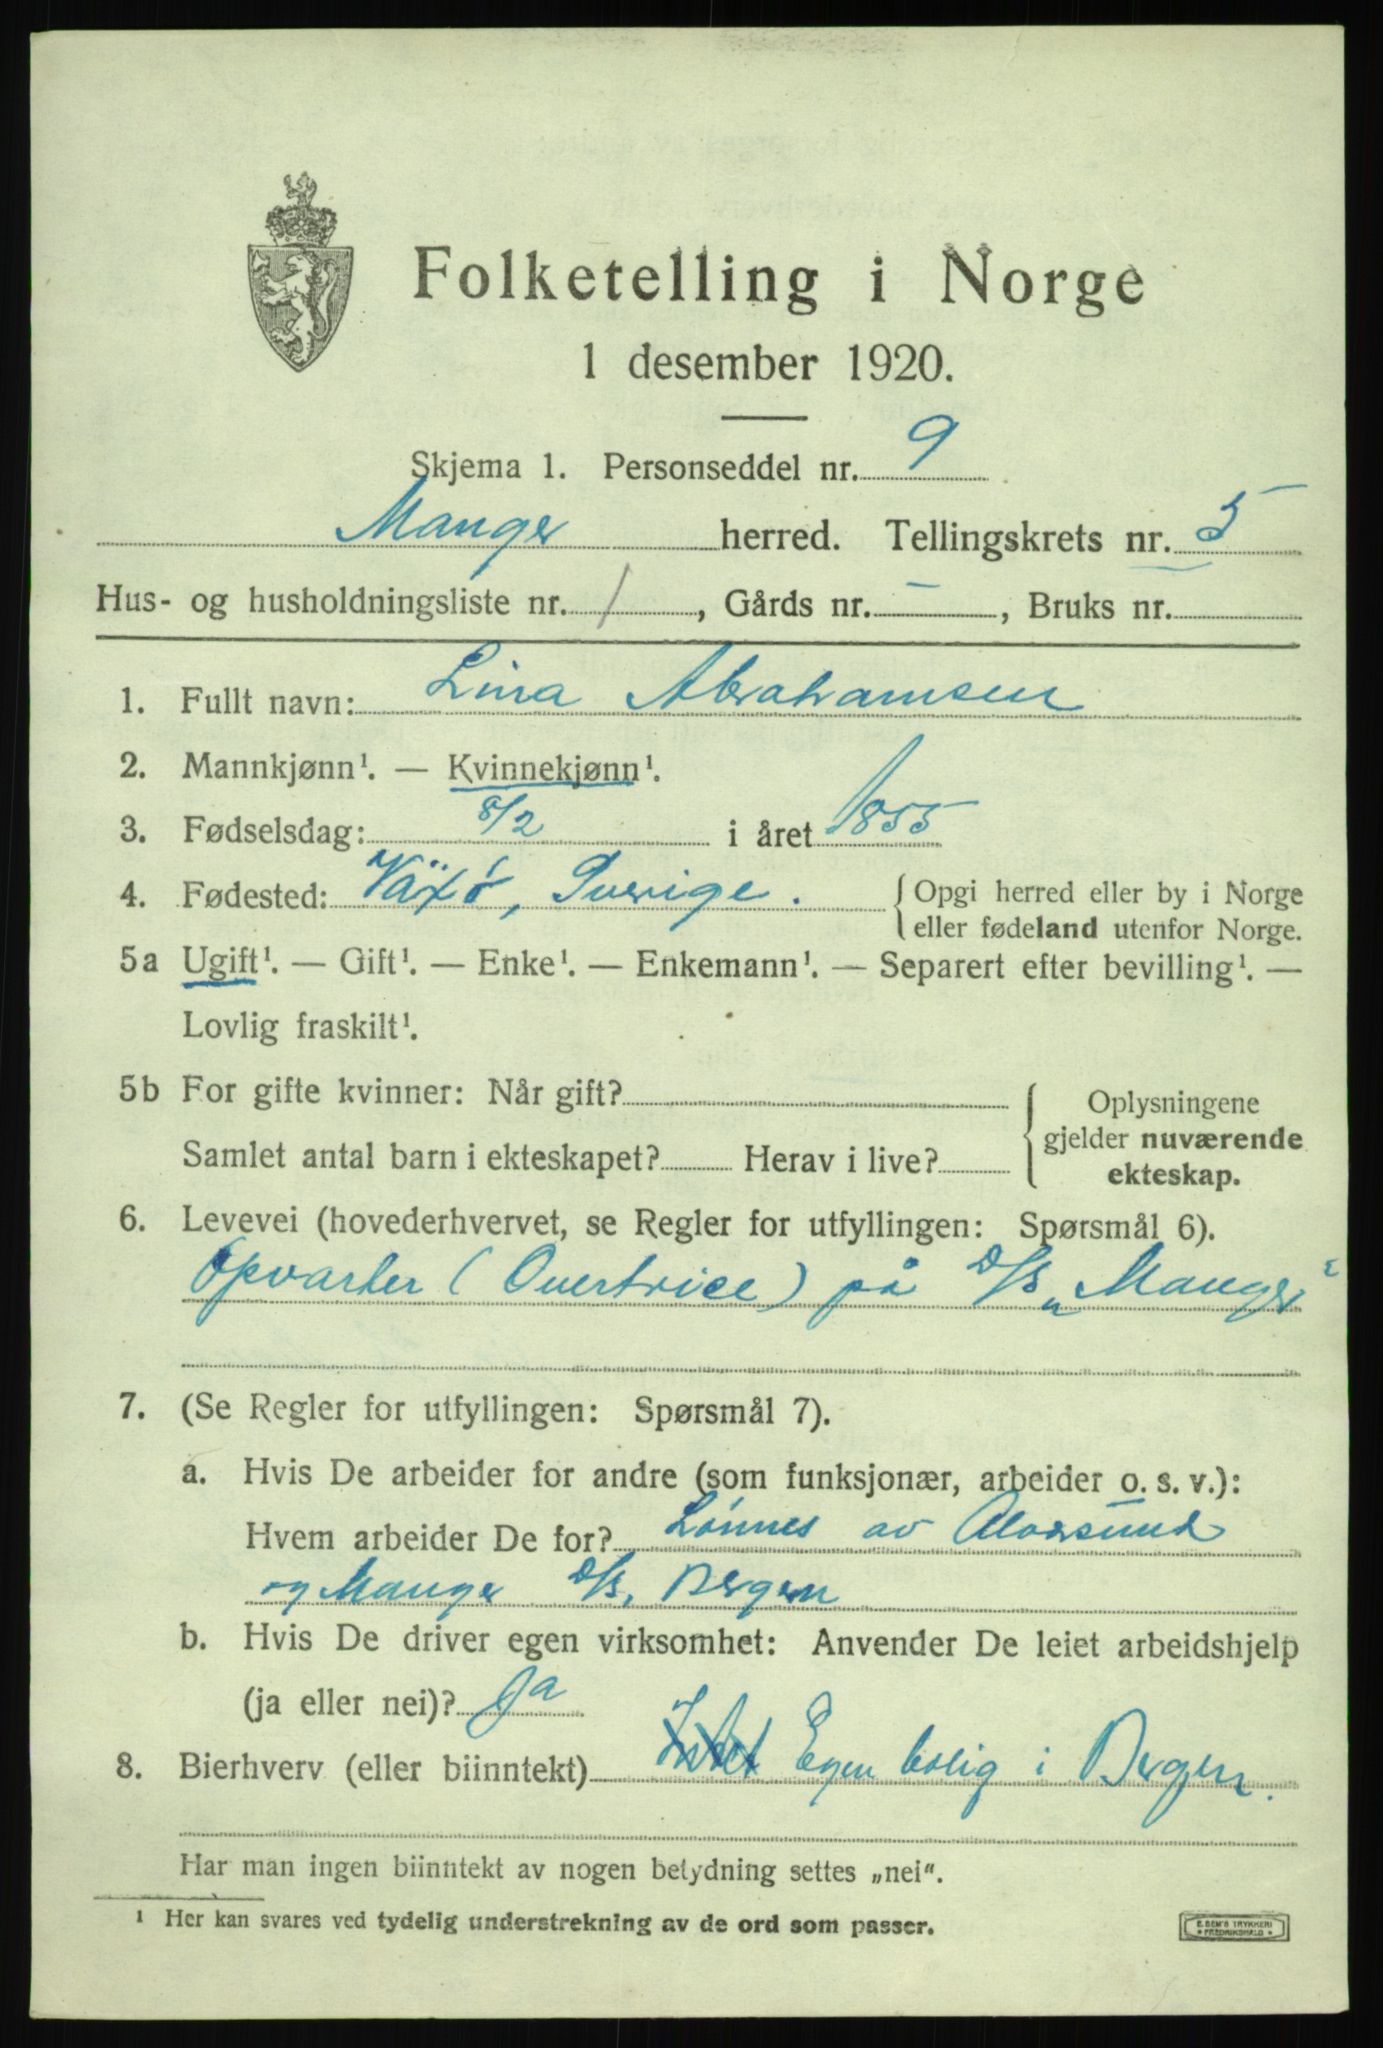 Folketelling i Norge
1 desember 1920.
Skjema 1. Personseddel nr. 9
Manger herred. Tellingskrets nr. 5
Hus- og husholdningsliste nr. 1, Gårds nr. –, Bruks nr.
1. Fullt navn: Lina Abrahamsen
2. Mannkjønn¹. — Kvinnekjønn¹.
3. Fødselsdag: 8/2 i året 1855
4. Fødested: Växsø, Sverige. { Opgi herred eller by i Norge
eller fødeland utenfor Norge.
5a Ugift¹. — Gift¹. — Enke¹. — Enkemann¹. — Separert efter bevilling¹. —
Lovlig fraskilt¹.
5b For gifte kvinner: Når gift?
Samlet antal barn i ekteskapet? Herav i live?
{ Oplysningene
gjelder nuværende
ekteskap.
6. Levevei (hovederhvervet, se Regler for utfyllingen: Spørsmål 6).
Opvarter (Ouertrice) på D/S „Manger"
7. (Se Regler for utfyllingen: Spørsmål 7).
a. Hvis De arbeider for andre (som funksjonær, arbeider o. s. v.):
Hvem arbeider De for? Lönnes av Alversund
og Manger D/S, Bergen
b. Hvis De driver egen virksomhet: Anvender De leiet arbeidshjelp
(ja eller nei)? Ja
8. Bierhverv (eller biinntekt) Intet Egen bolig i Bergen.
Har man ingen biinntekt av nogen betydning settes „nei“.
¹ Her kan svares ved tydelig understrekning av de ord som passer.
E. SEM'S TRYKKERI
FREDRIKSHALD